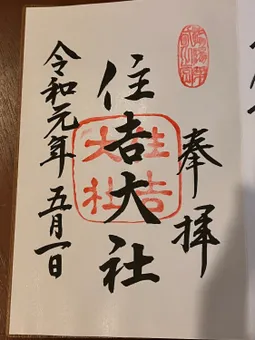 奉拝
住吉大社
住吉
大社
令和元年 五月一日